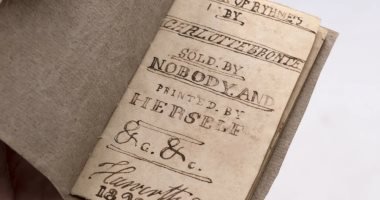 OF RYHMES
BY.
CHARLOTTE BRONTE
SOLD. BY.
NOBODY. AND
PRINTED. BY
HERSELF
&c. &c.
Haworth